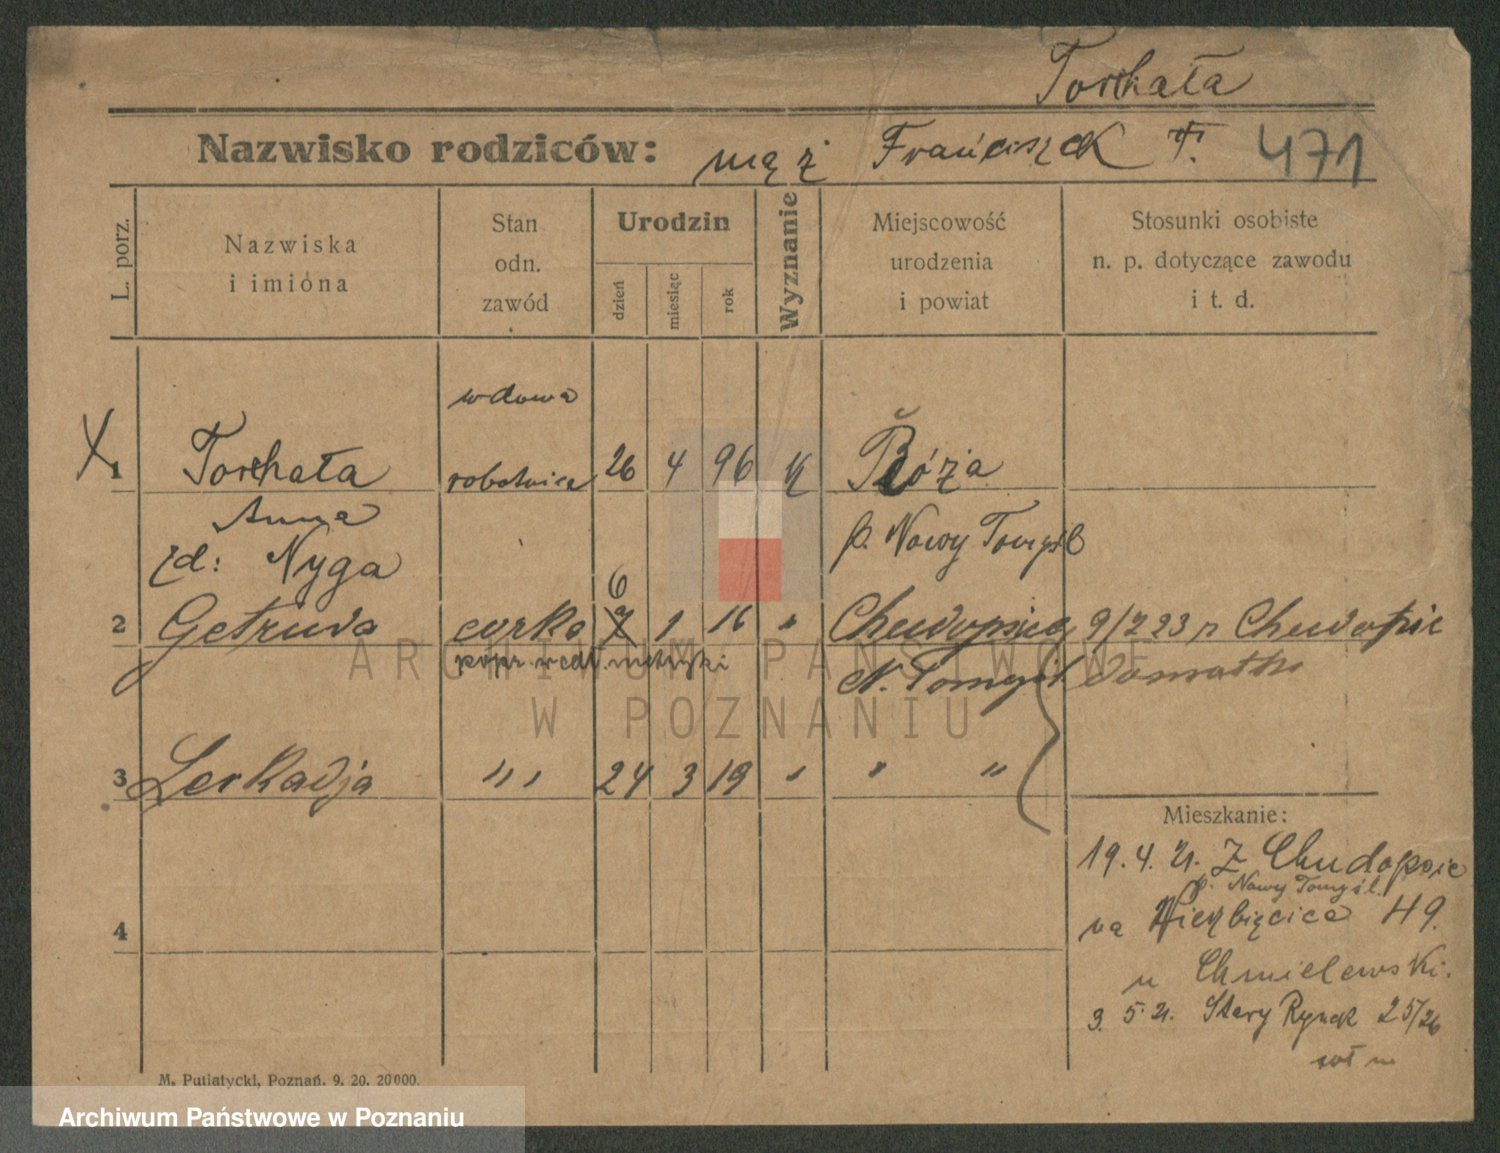 Torchała
Nazwisko rodziców: mąż Franciszek T. 471
L. porz.
Nazwiska i imióna
Stan odn. zawód
Urodzin
dzień
miesiąc
rok
Wyznanie
Miejscowość urodzenia i powiat
Stosunki osobiste n. p. dotyczące zawodu i t. d.
wdowa
1 Torchała robotnica 26 4 96 k Róża
Anna
zd: Nyga p. Nowy Tomyśl
6
2 Getruda curka 7 1 16 " Chudopsice 9/7 23 n Chudopsic
popr. wedł. metryki N. Tomyśl
3 Leokadja " " 24 3 19 " " "
Mieszkanie:
19. 4. 21. Z Chudopsic
p. Nowy Tomyśl.
4 na Wierzbięcice 49.
u Chmielewski.
3. 5. 21. Stary Rynek 25/26
M. Putiatycki, Poznań. 9. 20. 20000.
ARCHIWUM PAŃSTWOWE
W POZNANIU
Archiwum Państwowe w Poznaniu